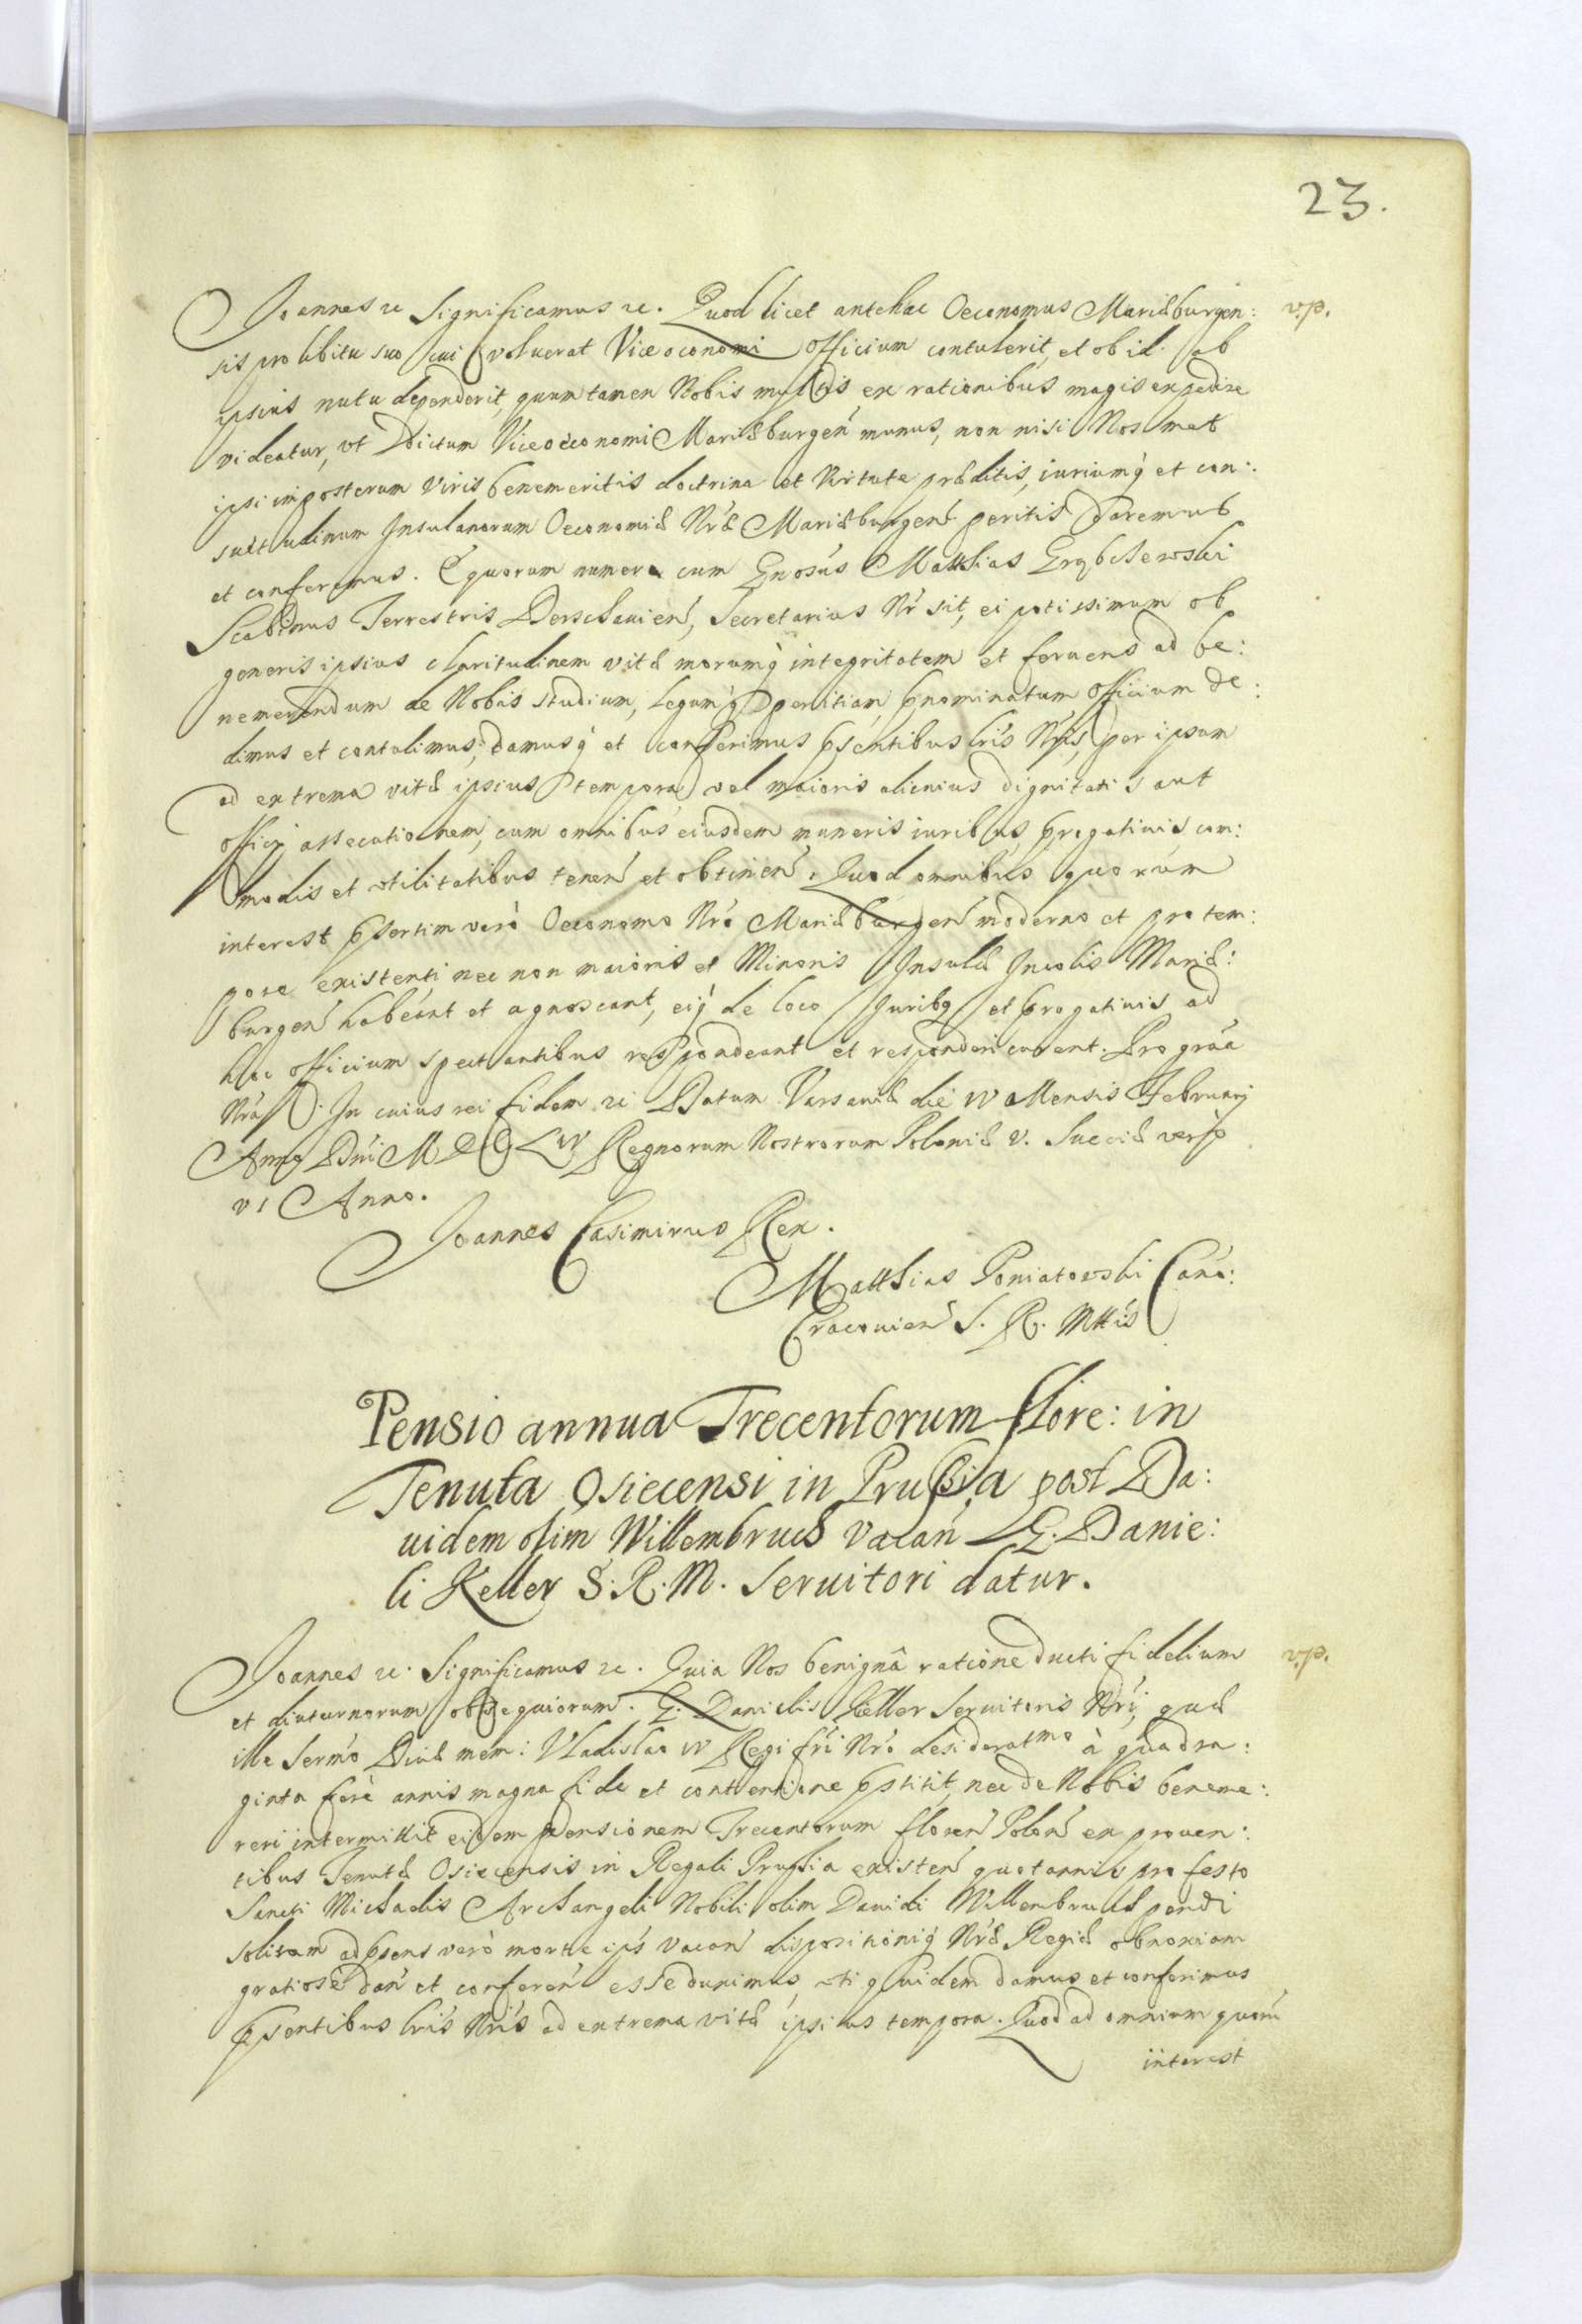 23.
Joannes etc Significamus etc. Quod licet antehac Oeconomus Mariæburgen:
v.p.
sis pro libitu suo cui voluerat Viceoconomi officium contulerit, et ob id ab
ipsius nutu dependerit, quum tamen Nobis multis ex rationibus magis expedire
videatur, vt dictum Viceoeconomi Mariæburgen munus, non nisi Nosmet
ipsi imposterum Viris benemeritis doctrina et Virtute præditis, iuriumq et con:
suetudinum Insulanorum Oeconomiæ Nræ Mariæburgen peritis daremus
et conferemus. E quorum numero cum Gnosus Matthias
Scabinus Terrestris Derschauien, Secretarius Nr sit, ei potissimum ob
generis ipsius claritudinem vitæ morumq integritatem et feruens ad be:
nemerendum de Nobis studium, Legumq peritiam, pnominatum officium de:
dimus et contulimus, damusq et conferimus psentibus lris Nris, per ipsum
ad extrema vitæ ipsius tempora vel maioris alicuius dignitatis aut
officij assecutionem, cum omnibus eiusdem muneris iuribus, progatiuis com:
modis et vtilitatibus tenen et obtinen. Quod omnibus quorum
interest psertim verò Oeconomo Nro Mariæburgen moderno et pro tem:
pore existenti nec non maioris et Minoris Insulæ Incolis Mariæ:
burgen habeant et agnoscant, eiq de loco Juribq et progatiuis ad
hoc officium spectantibus respondeant et responderi curent. Pro gràa
Nra. In cuius rei fidem etc Datum Varsauiæ die IV Mensis Februarij
Anno Dni MDCLIV Regnorum Nostrorum Poloniæ v. Sueciæ verò
VI Anno.
Joannes Casimirus Rex.
Matthias Poniatovski Cano:
Cracouien S. R. Mttis
Pensio annua Trecentorum flore: in
Tenuta Osiecensi in Prussia post Da:
uidem olim Willembruch vacan G. Danie:
li Keller S. R. M. Seruitori datur.
Joannes etc. Significamus etc. Quia Nos benignâ ratione ducti fidelium
v.p.
et diuturnorum obsequiorum. G. Danielis Keller Seruitoris Nri, quæ
ille Sermo Diuæ mem: Vladislao IV Regi fri Nro desideratmo à quadra:
ginta ferè annis magna fide et contentione pstitit, nec de Nobis beneme:
reri intermittit eidem pensionem Trecentorum floren Polon ex prouen:
tibus Tenutæ Osiecensis in Regali Prussia existen quotannis pro festo
Sancti Michaelis Archangeli Nobili olim Dauidi Willembruch pendi
solitam ad psens verò morte ips vacan dispositioniq Nræ Regiæ obnoxiam
gratiosè dan et conferen esse duximus, vti quidem damus et conferimus
psentibus lris Nris ad extrema vitæ ipsius tempora. Quod ad omnium quorū
interest